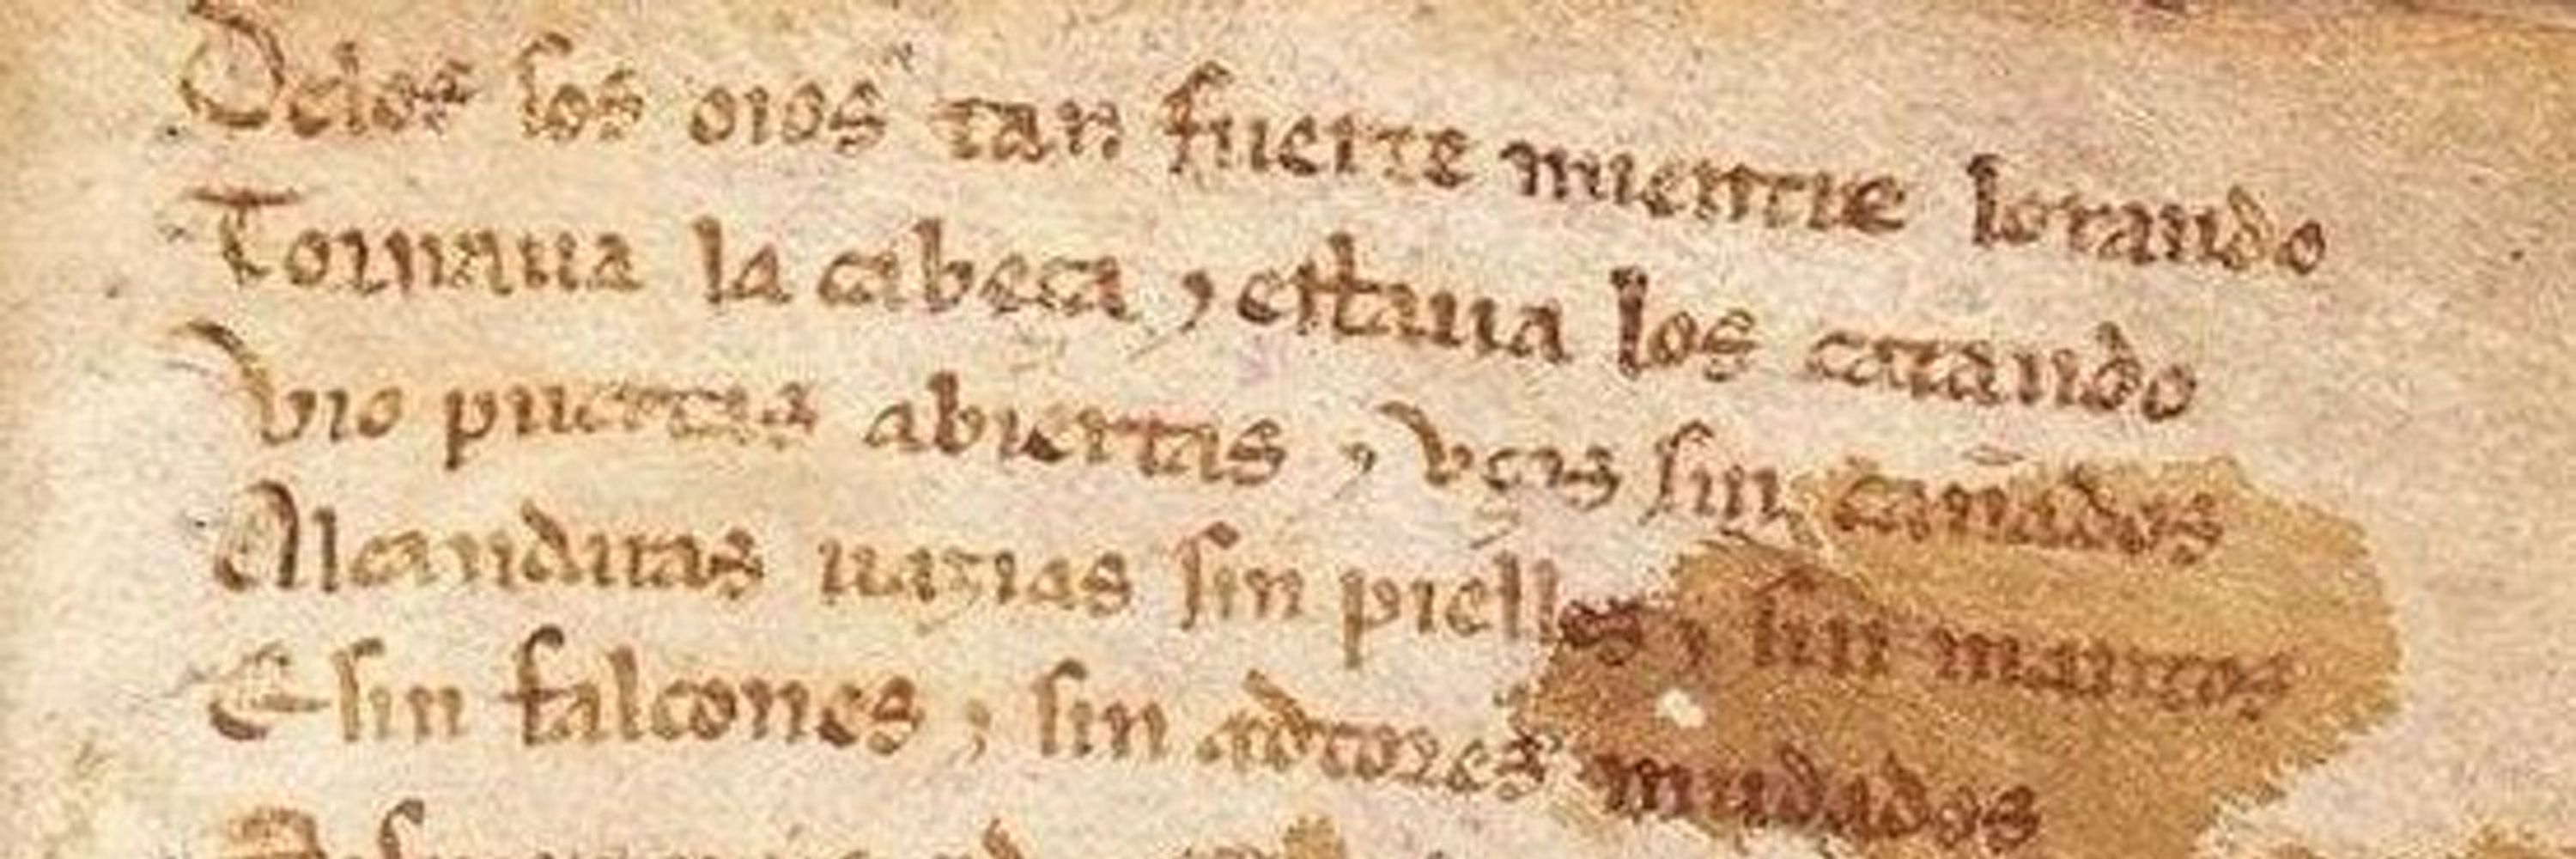 Delos sos oios tan fuerte mientre lorando
Tornaua la cabeça ⁊ estaua los catando
Vio puertas abiertas ⁊ vços sin cañados
Alcandaras uazias sin pielles ⁊ sin mantos
E sin falcones ⁊ sin adtores mudados